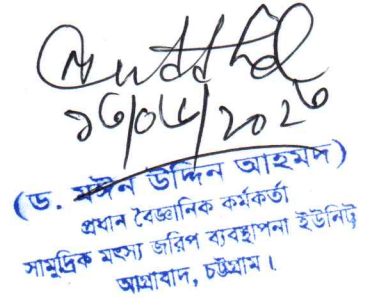 (ড. মঈন উদ্দিন আহমদ)
প্রধান বৈজ্ঞানিক কর্মকর্তা
সামুদ্রিক মৎস্য জরিপ ব্যবস্থাপনা ইউনিট
আগ্রাবাদ, চট্টগ্রাম।